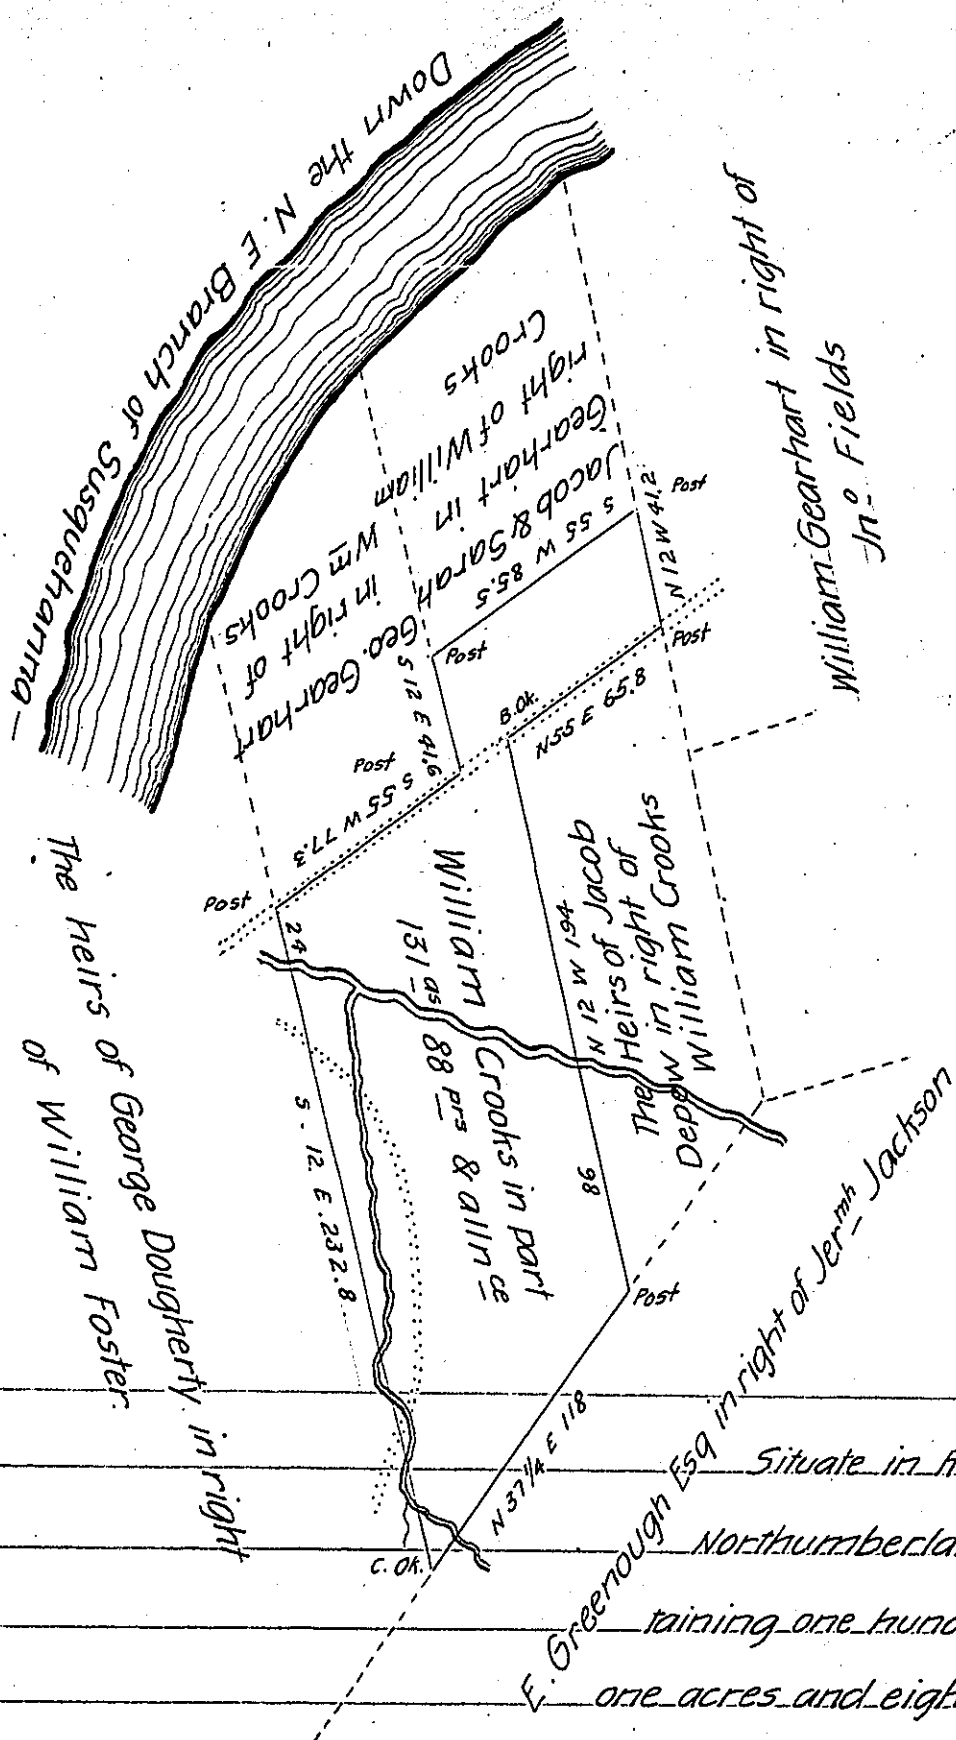 Down the N. E Branch of Susquehanna_
William Gearhart in right of
Jn.º Fields
Jacob & Sarah
Gearhart in
right of William
Crooks
Geo. Gearhart
in right of
Wm Crooks
Post
N 12 W 41.2
S 55 W 85.5
Post
Post
S 12 E 41.6
B.Ok.
N 55 E 65.8
Post
S 55 W 77.3
Post
24
N 12 W 194
The Heirs of Jacob
Depew in right of
William Crooks
William Crooks in part
131 as 88 prs & allnce
98
Post
S. 12. E. 232.8
The heirs of George Dougherty in right
of William Foster.
N 37 1/4 E 118
C. Ok.
E. Greenough Esq in right of Jermh Jackson
Situate in
Northumberla
taining one hund
one acres and eigh